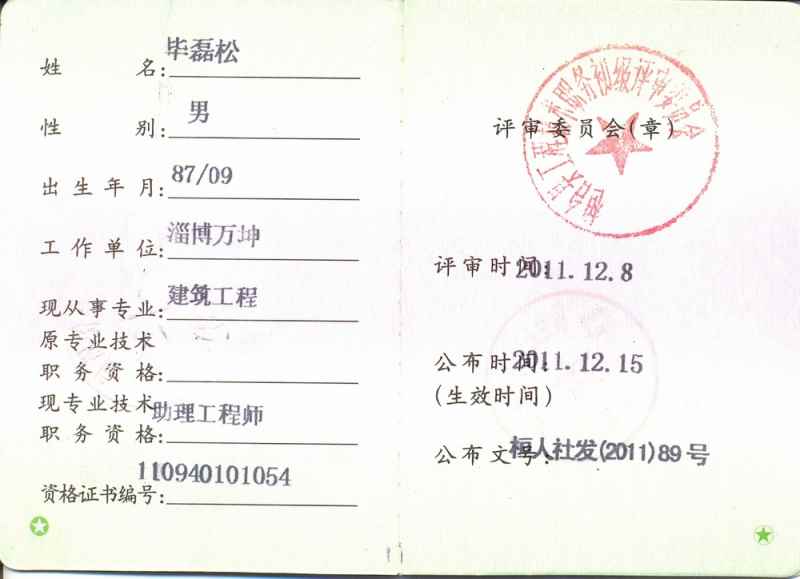 姓名:毕磊松
性别:男
出生年月:87/09
工作单位:淄博万坤
现从事专业:建筑工程
原专业技术
职务资格:
现专业技术
职务资格:助理工程师
资格证书编号:110940101054
桓台县工程技术职务初级评审委员会
评审委员会(章)
评审时间:2011.12.8
公布时间:2011.12.15
(生效时间)
公布文号:桓人社发(2011)89号